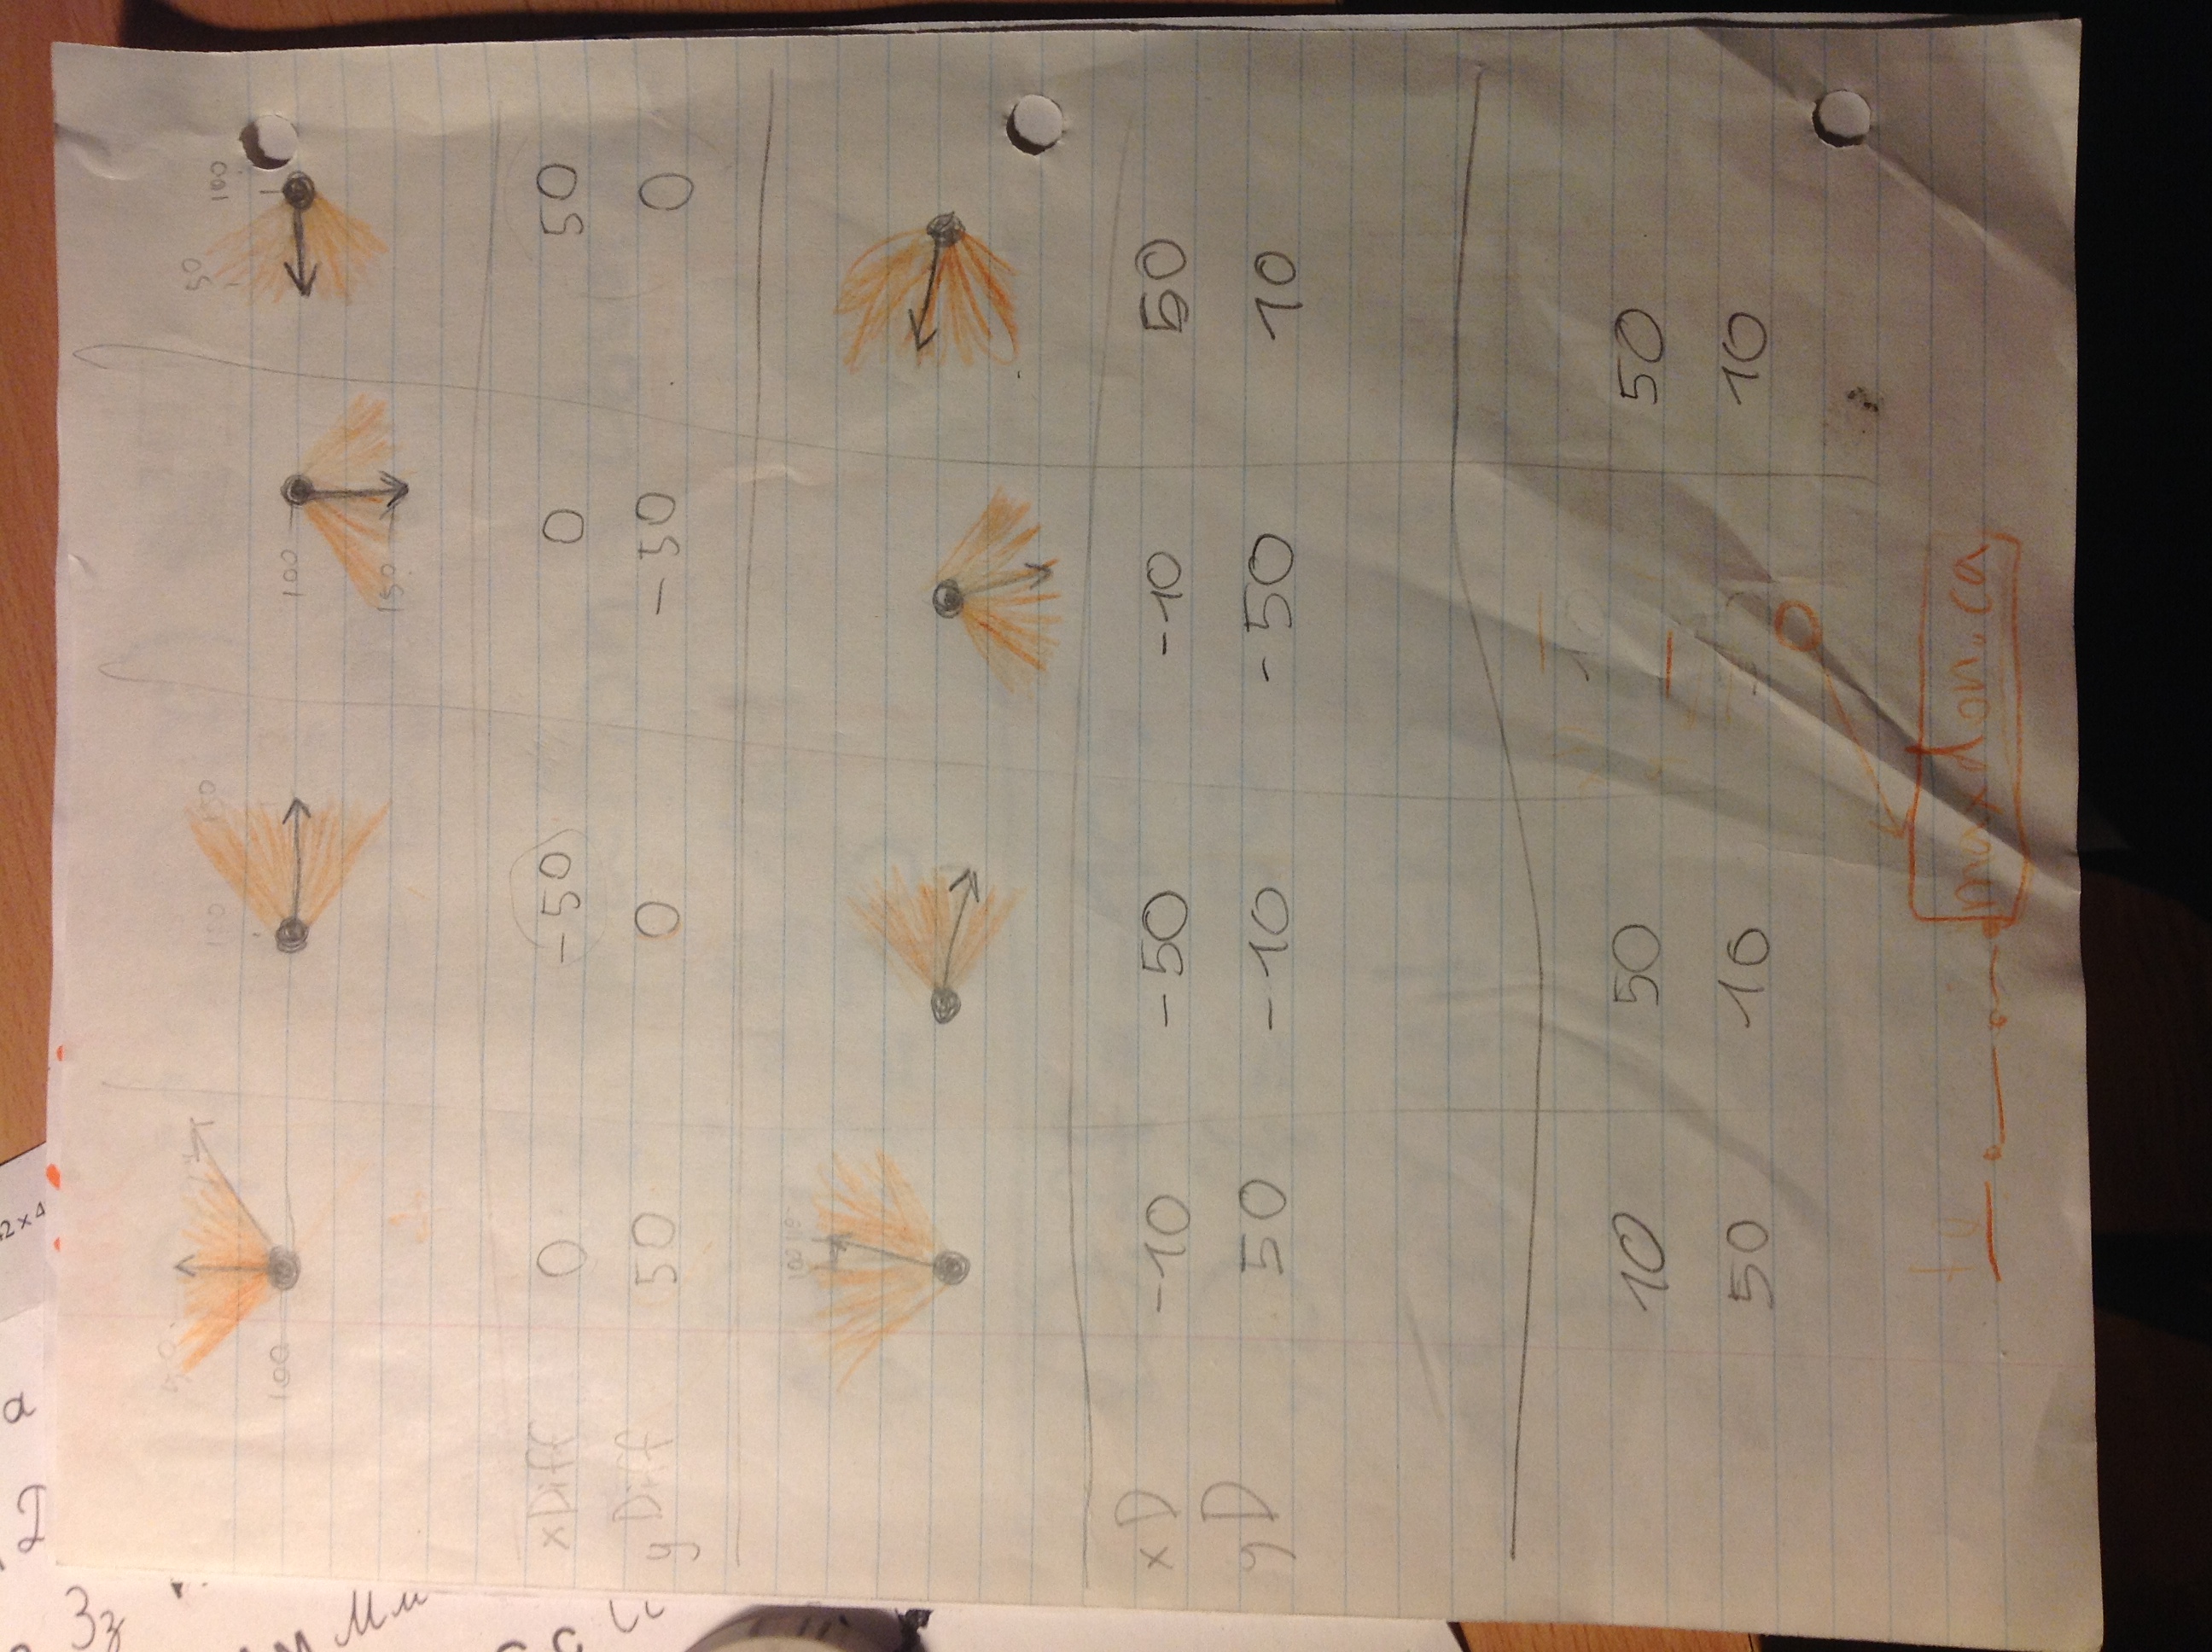 50
100 150 50 100
100 100
150
xDiff 0 -50 0 50
yDiff 50 0 -50 0
100 110
xD -10 -50 -10 50
yD 50 -10 -50 10
10 50 50
50 10 10
maxdon.ca